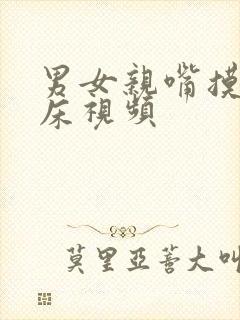 男女親嘴摸
床視頻
莫里亞蒼大叫